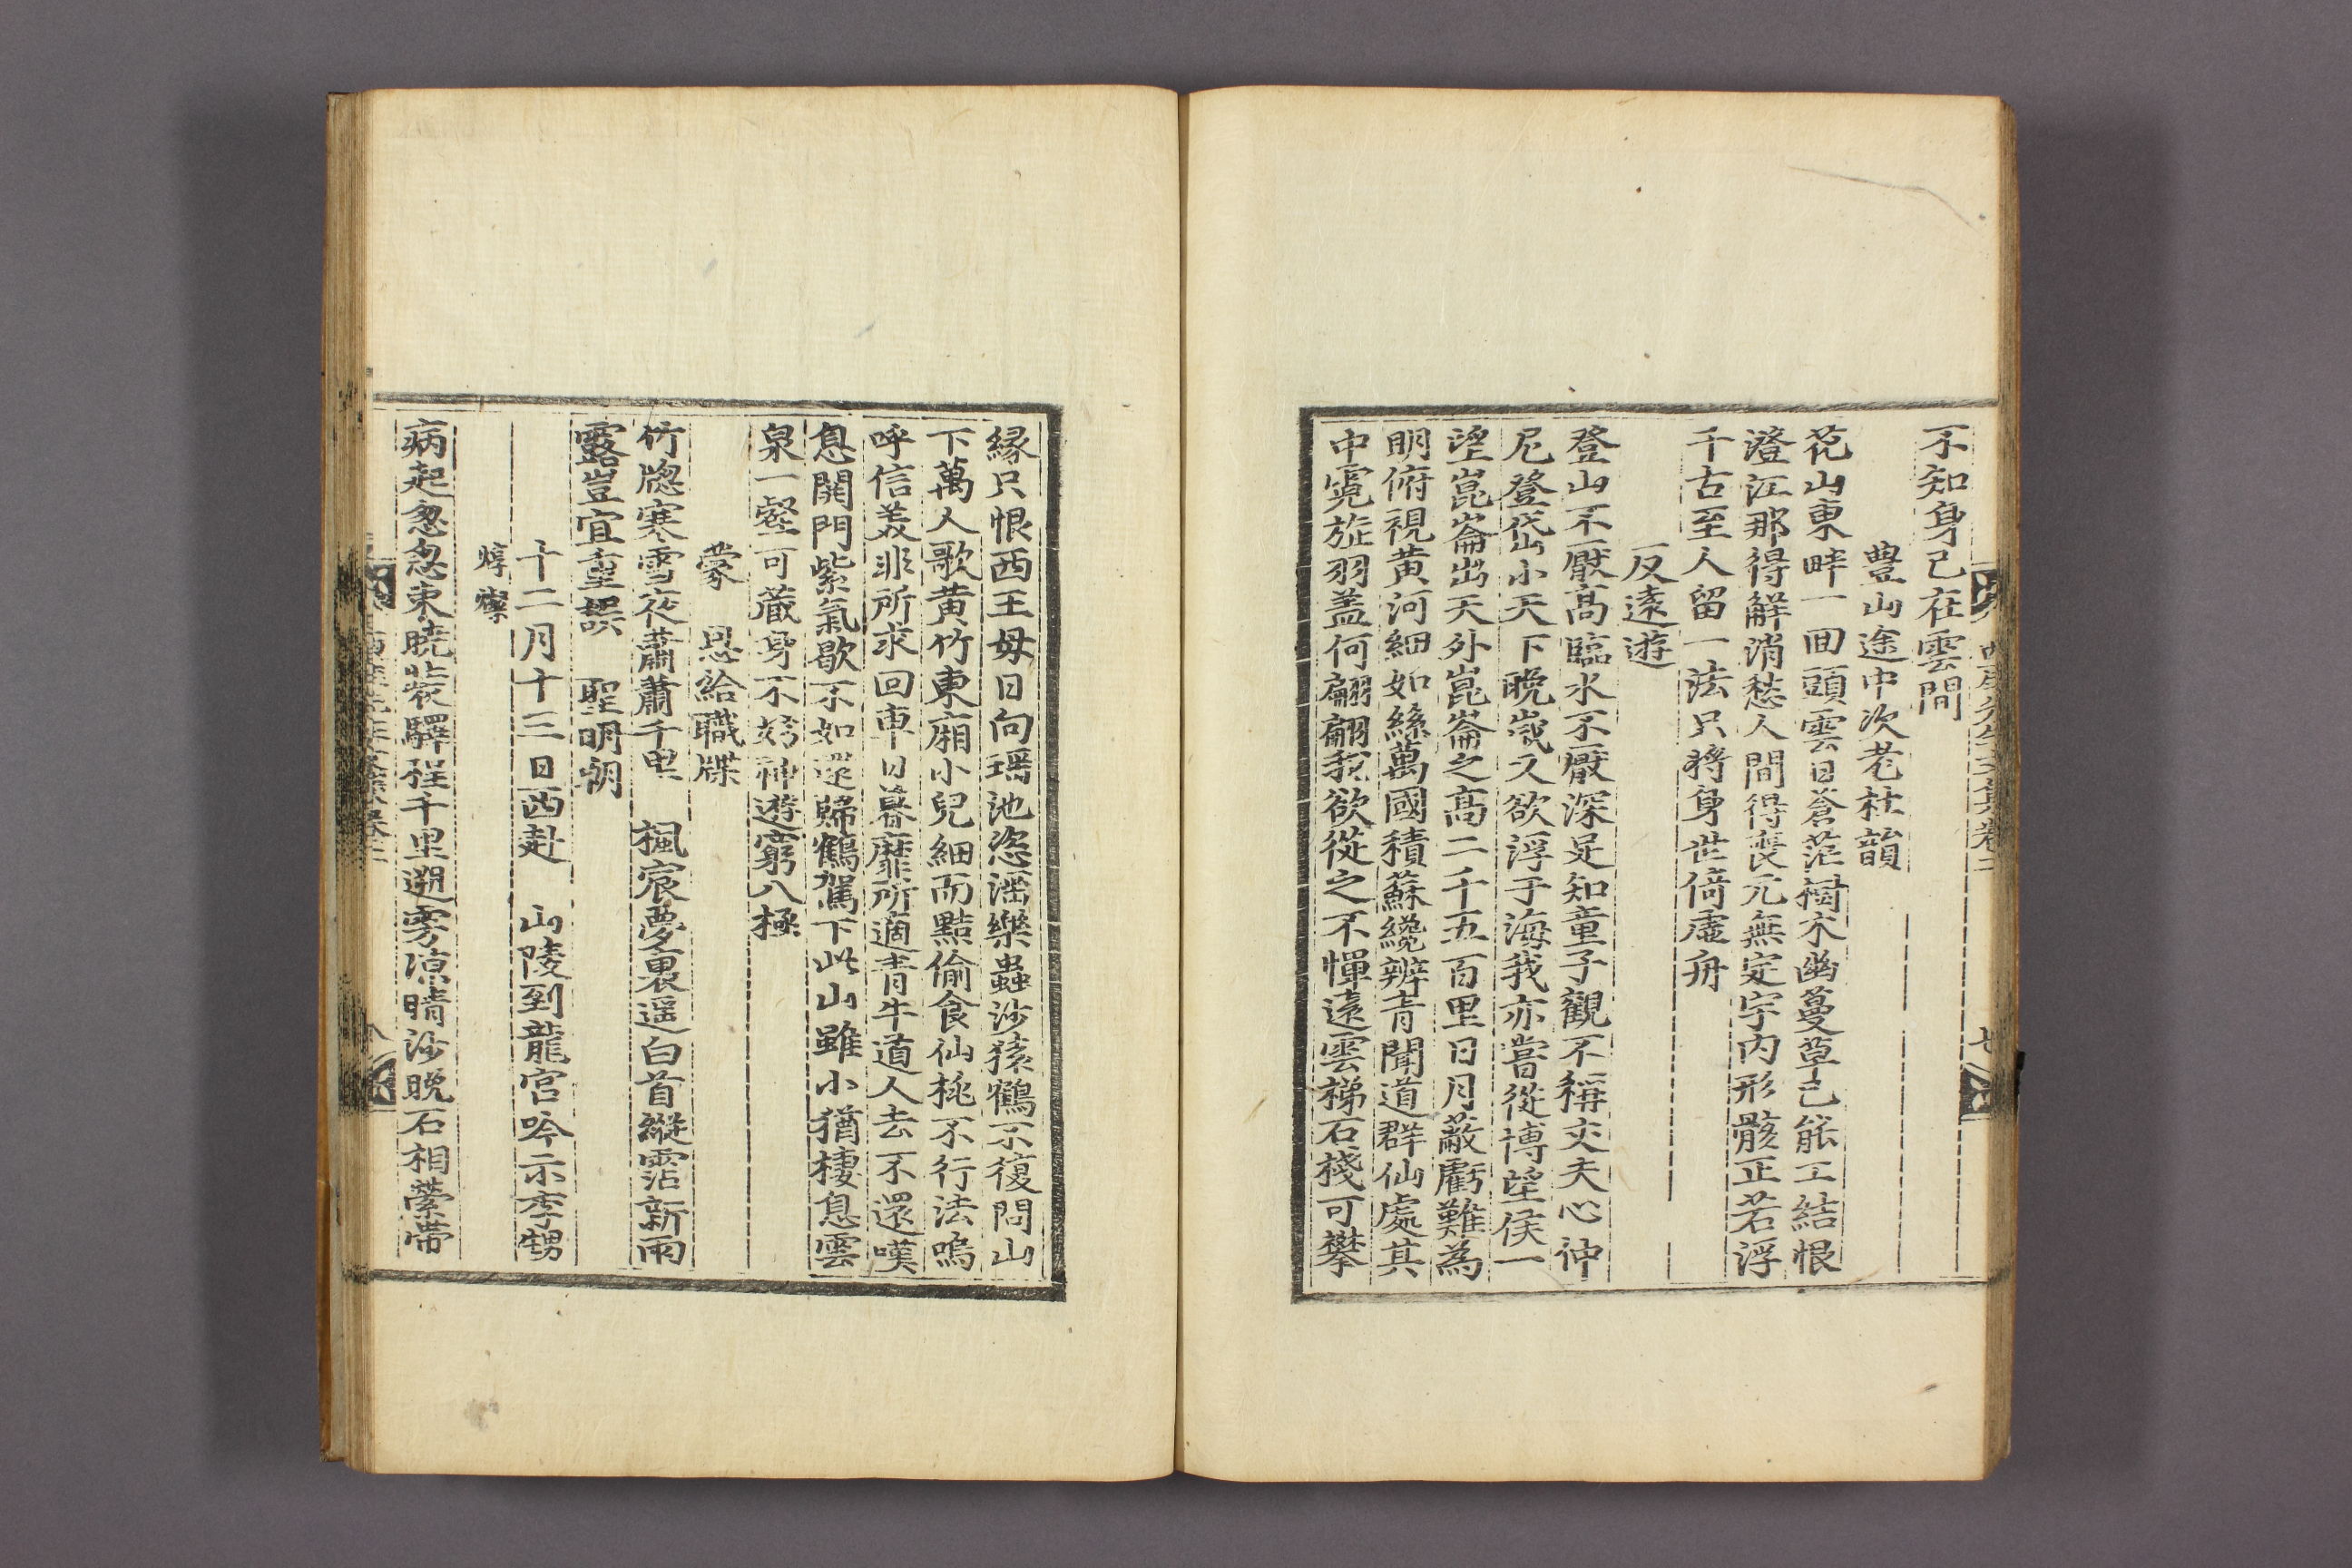 不知身已在雲間
豊山途中次老杜韻
花山東畔一回頭雲日蒼茫樹木幽蔓草已能工結恨
澄江那得解消愁人間得喪元無定宇内形骸正若浮
千古至人留一法只將身世倚虛舟
反遠遊
登山不厭高臨水不厭深是知童子觀不稱丈夫心仲
尼登岱山小天下晩歲又欲浮于海我亦嘗從博望侯一
望崑崙出天外崑崙之高二千五百里日月蔽虧難為
明俯視黃河細如絲萬國積蘇纔辨青聞道群仙處其
中霓旌羽盖何翩翩我欲從之不憚遠雲梯石棧可攀
縁只恨西王母日向瑤池恣滛樂蟲沙猿鶴不復問山
下萬人歌黃竹東廂小兒細而黠偷食仙桃不行法嗚
呼信美非所求回車日暮靡所適青牛道人去不還嘆
息関門紫氣歇不如還歸鶴駕下此山雖小猶棲息雲
泉一壑可藏身不妨神遊窮八極
蒙 恩給職牒
竹牕寒雪夜蕭蕭千里 楓宸夢裏遥白首縱霑新雨
露豈宜重誤 聖明朝
十二月十三日西赴 山陵到龍宮吟示李甥
焞㷫
病起怱怱束曉裝驛程千里遡雱凉晴沙晩石相縈帶